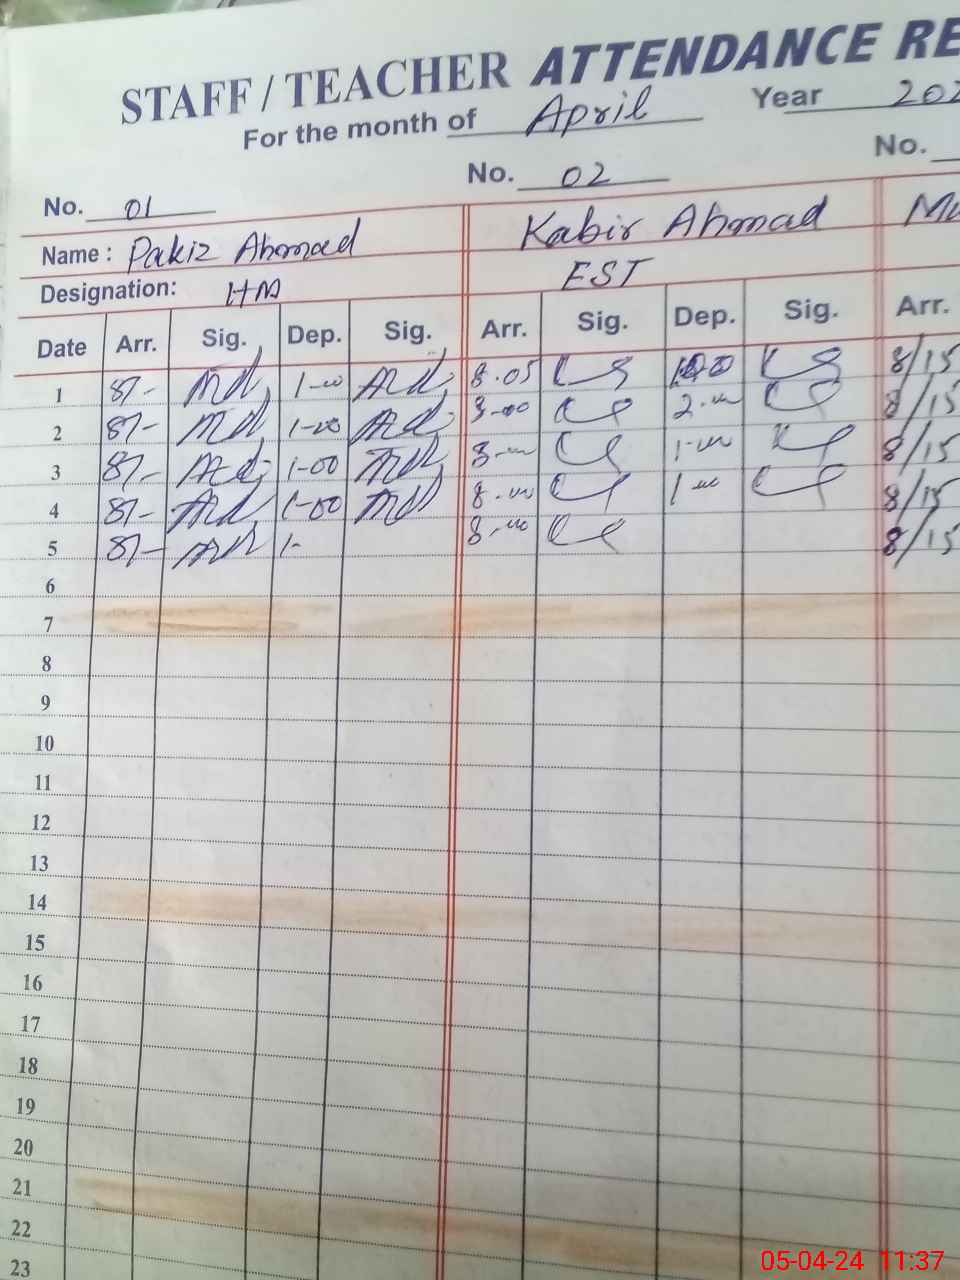 STAFF / TEACHER ATTENDANCE RE
For the month of April Year 202
No. 01 No. 02 No.
Name : Pakiz Ahmad Kabir Ahmad Mu
Designation: HM EST
Date Arr. Sig. Dep. Sig. Arr. Sig. Dep. Sig. Arr.
1 8/- 1-00 8.05 8/15
2 8/- 1-00 8-00 2-00 8/15
3 8/- 1-00 8-00 1-00 8/15
4 8/- 1-00 8-00 1-00 8/15
5 8/- 1- 8-00 8/15
6
7
8
9
10
11
12
13
14
15
16
17
18
19
20
21
22
23
05-04-24 11:37